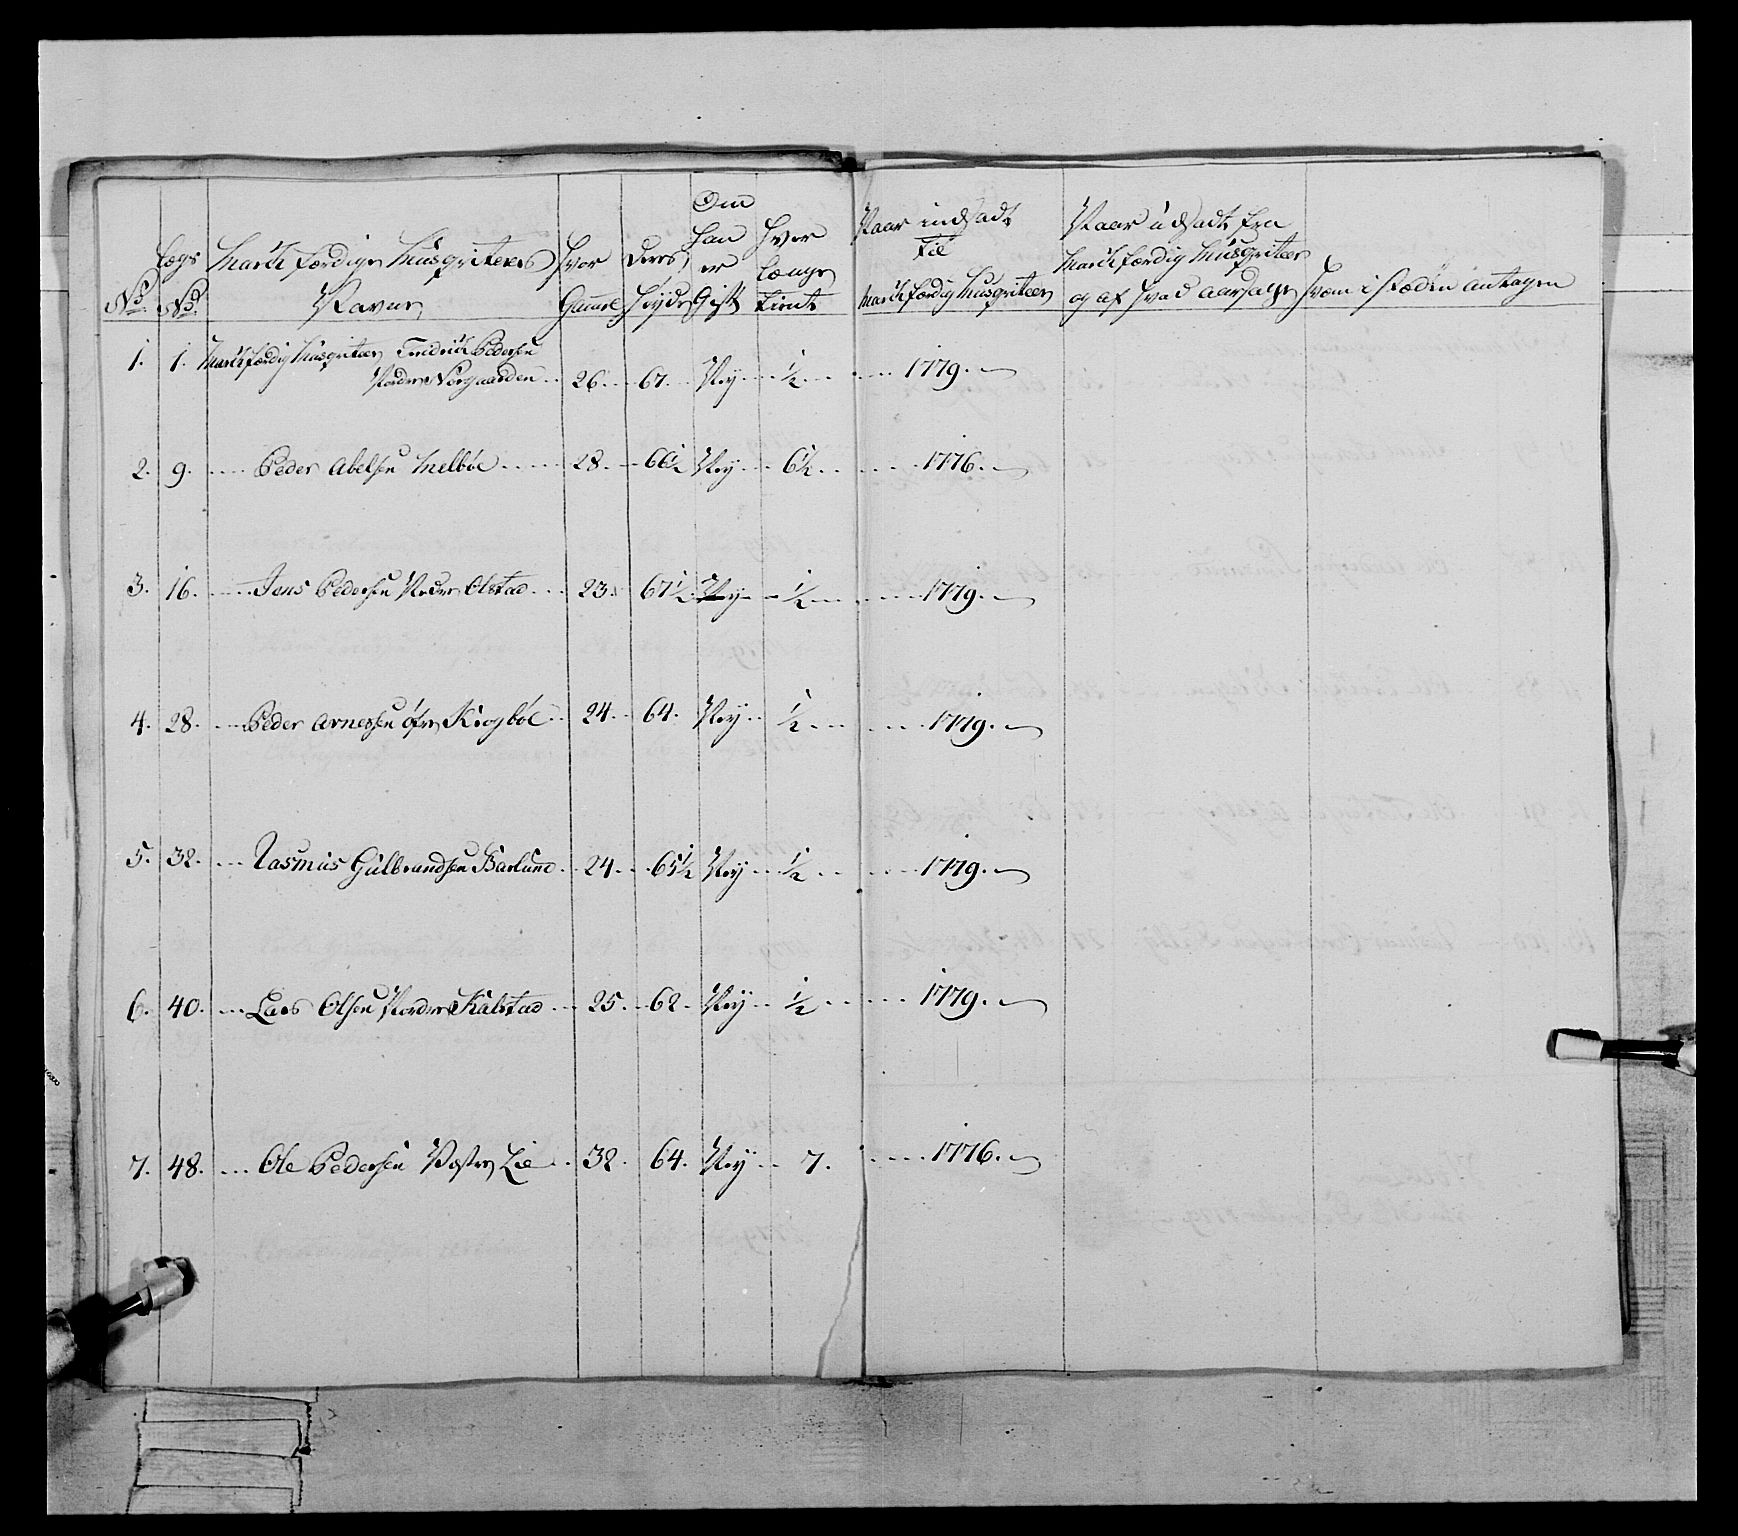 No. Lægs No. March færdige Musqviteers Navne Hvor Gammel Deres Høyde Om Han er Gift Hvor længe tient Naar indsadt til March færdig Musqviteer Naar udsadt fra March færdig Musqviteer og af Hvad aarsage Hvem i stæden antagen
1. 1. March færdig Musqviteer Friderich Pedersen
Nordre Norgaarden .. 26. .. 67. .. Ney .. ½ .. 1779.
2. 9. .... Peder Abelsen Melbøe .... 28. .. 66½ Ney .. 6½ .. 1776.
3. 16. .... Jens Pedersen Nedre Olstad .. 23. 67½. Ney .. ½ .. 1779.
4. 28. .... Peder Arnessen Øfre Kiogbøe .. 24. .. 64. Ney .. ½ .. 1779.
5. 32. .... Rasmus Gulbrandsen Barlund .. 24. .. 65½ Ney .. ½ .. 1779.
6. 40. .... Lars Olsen Nordre Kalstad .. 25. .. 62. Ney .. ½ .. 1779.
7. 48. .... Ole Pedersen Væstre Lie .. 32. 64. Ney .. 7. .. 1776.